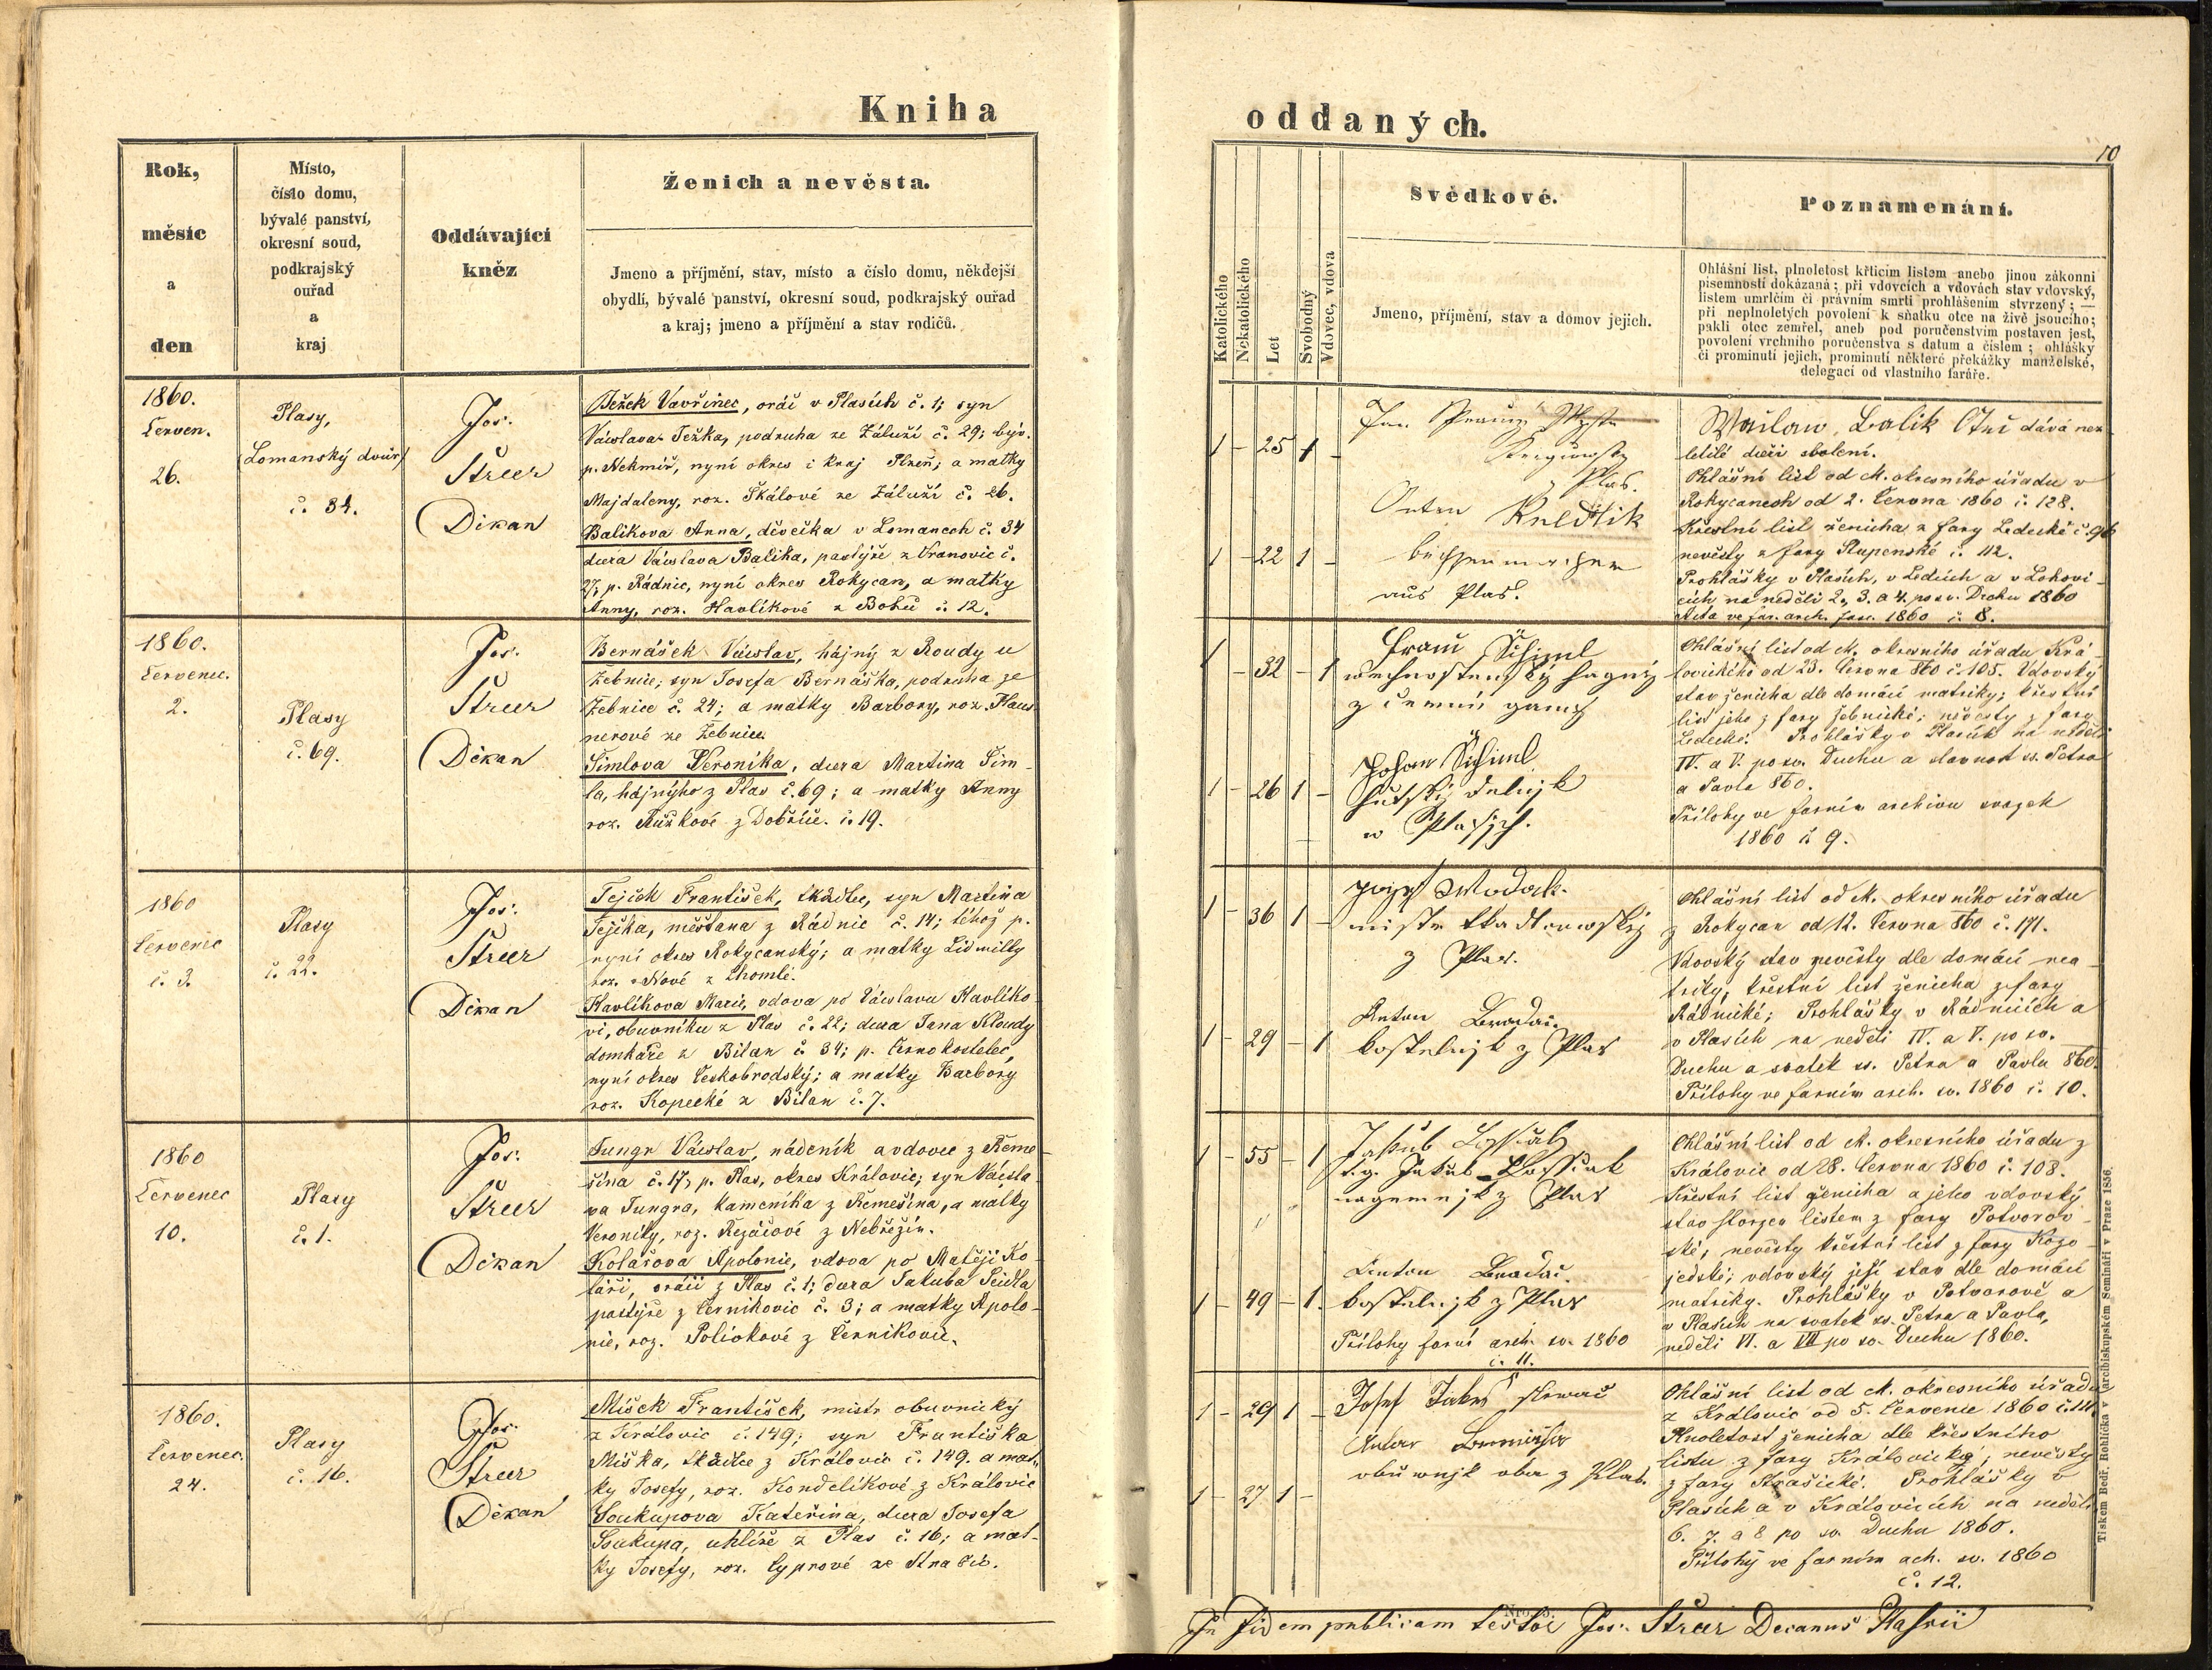 Kniha
Rok,
měsíc
a
den
Místo,
číslo domu,
bývalé panství,
okresní soud,
podkrajský
ouřad
a
kraj
Oddávající
kněz
Ženich a nevěsta.
Jmeno a příjmění, stav, místo a číslo domu, někdejší
obydlí, bývalé panství, okresní soud, podkrajský ouřad
a kraj; jmeno a příjmění a stav rodičů.
1860.
Červen.
26.
Plasy,
(Lomanský dvůr)
č. 34.
Jos.
Střeer
Děkan
Ježek Vavřinec, oráč v Plasích č. 1; syn
Václava Ježka, podruha ze Záluží č. 29; býv.
p. Nekmíř, nyní okres i kraj Plzeň; a matky
Majdaleny, roz. Škálové ze Záluží č. 26.
Balíkova Anna, děvečka v Lomanech č. 34
dcera Václava Balíka, pastýře z Vranovic č.
27, p. Rádnic, nyní okres Rokycan, a matky
Anny, roz. Havlíkové z Bohů č. 12.
1860.
Červenec.
2.
Plasy
č. 69.
Jos.
Střeer
Děkan
Bernášek Václav, hájný z Roudy u
Žebnic; syn Josefa Bernáška, podruha ze
Žebnice č. 24; a matky Barbory, roz. Haus
nerové ze Žebnice.
Šimlova Veronika, dcera Martina Šim-
la, hájnýho z Plas č. 69; a matky Anny
roz. Růžkové z Dobříče. č. 19.
1860
Červenec
č. 3.
Plasy
č. 22.
Jos.
Střeer
Děkan
Ježek František, tkadlec, syn Martina
Ježka, měšťana z Rádnic č. 14; téhož p.
nyní okres Rokycanský; a matky Lidmilly
roz. Nové z Chomlé.
Havlíkova Marie, vdova po Václavu Havlíko-
vi, obuvníku z Plas č. 22; dcera Jana Kloudy
domkáře z Bílan č. 34; p. Černokostelec,
nyní okres Českobrodský; a matky Barbory
roz. Kopecké z Bílan č. 7.
1860
Červenec
10.
Plasy
č. 1.
Jos.
Střeer
Děkan
Jungr Václav, nádeník a vdovec z Řeme-
šína č. 17, p. Plas, okres Královic; syn Václa-
va Jungra, kameníka z Řemešína, a matky
Veroniky, roz. Řezáčové z Nebřežín.
Kolářova Apolonie, vdova po Matěji Ko-
láři, oráči z Plas č. 1; dcera Jakuba Seidla
pastýře z Černikovic č. 3; a matky Apolo-
nie, roz. Polívkové z Černikovic.
1860.
Červenec.
24.
Plasy
č. 16.
Jos.
Střeer
Děkan
Míšek František, mistr obuvnický
z Královic č. 149; syn Františka
Míška, tkadlce z Královic č. 149. a mat-
ky Josefy, roz. Kondelíkové z Královic
Soukupova Kateřina, dcera Josefa
Soukupa, uhlíře z Plas č. 16; a mat-
ky Josefy, roz. Cyprové ze Strašic.
oddaných.
10
Katolického
Nekatolického
Let
Svobodný
Vdovec, vdova
Svědkové.
Jmeno, příjmění, stav a domov jejich.
Poznamenání.
Ohlášní list, plnoletost křticím listem anebo jinou zákonní
písemností dokázaná; při vdovcích a vdovách stav vdovský,
listem umrlčím či právním smrti prohlášením stvrzený; —
při neplnoletých povolení k sňatku otce na živě jsoucího;
pakli otec zemřel, aneb pod poručenstvím postaven jest,
povolení vrchního poručenstva s datum a číslem; ohlášky
či prominutí jejich, prominutí některé překážky manželské,
delegací od vlastního faráře.
1 - 25 1 -
1 - 22 1 -
z Plas.
Anton
aus Plas.
Wáclaw Balik Otec dává nez
letilé dceři svolení.
Ohlášní list od c. k. okresního úřadu v
Rokycanech od 2. Června 1860 č. 128.
Křestní list ženicha z fary Ledecké č. 96
nevěsty z fary Stupenské č. 112.
Prohlášky v Plasích, v Ledcích a v Lohovi-
cích na neděli 2., 3. a 4. po sv. Duchu 1860
Akta ve far. arch. fasc. 1860 č. 8.
1 - 32 - 1
1 - 26 1 -
Franc Schiml
Johan Schiml
w Plasých.
Ohlášní list od c. k. okresního úřadu Krá-
lovického od 23. Června 860 č. 105. Vdovský
stav ženicha dle domácí matriky; křestní
list jeho z fary Žebnické; nevěsty z fary
Ledecké. Prohlášky v Plasích na neděli
IV. a V. po sv. Duchu a slavnost ss. Petra
a Pavla 860.
Přílohy ve farním archivu svazek
1860 č. 9.
1 - 36 1 -
1 - 29 - 1
Wodak
mistr tkadlcowský
z Plas.
Anton Bradáč
kostelnjk z Plas
Ohlášní list od c. k. okresního úřadu
z Rokycan od 12. Června 860 č. 171.
Vdovský stav nevěsty dle domácí ma-
triky, křestní list ženicha z fary
Rádnické; Prohlášky v Rádnicích a
v Plasích na neděli IV. a V. po sv.
Duchu a svátek ss. Petra a Pavla 860.
Přílohy ve farním arch. sv. 1860 č. 10.
1 - 55 - 1
1 - 49 - 1.
Anton Bradáč.
kostelnjk z Plas
Přílohy farní arch. sv. 1860
č. 11.
Ohlášní list od c. k. okresního úřadu z
Královic od 28. Června 1860 č. 108.
Křestní list ženicha a jeho vdovský
stav stvrzen listem z fary Potvorov-
ské; nevěsty křestní list z fary Kozo-
jedské; vdovský její stav dle domácí
matriky. Prohlášky v Potvorově a
v Plasích na svátek ss. Petra a Pavla,
neděli VI. a VII po sv. Duchu 1860.
1 - 29 1 -
1 - 27 1 -
Josef
obuwnjk oba z Plas.
Ohlášní list od c. k. okresního úřadu
z Královic od 5. Července 1860 č. 111.
Plnoletost ženicha dle křestního
listu z fary Královické; nevěsty
z fary Strašické. Prohlášky v
Plasích a v Královicích na neděli
6. 7. a 8 po sv. Duchu 1860.
Přílohy ve farním ach. sv. 1860
č. 12.
In fidem publicam testor Jos. Střeer Decanus Plassii
Tiskem Bedř. Rohlíčka v arcibiskupském Semináři v Praze 1856.